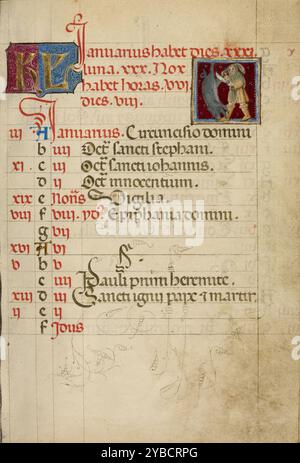 KL Ianuarius habet dies. xxxi.
luna. xxx. Nox
habet horas. xvi.
dies. viii.
iii A Ianuarius. Circuncisio domini
b iiii Oct. sancti stephani.
xi c iii Oct. sancti iohannis.
d ii Oct. innocentium.
xix e Nonas Vigilia.
viii f viii. yd. Epiphania domini.
g vii
xvi A vi
v b v
c iiii Pauli primi heremite.
xiii d iii Sancti igini pape et martir.
ii e ii
f Idus
alamy
Image ID: 2YBCRPG
www.alamy.com